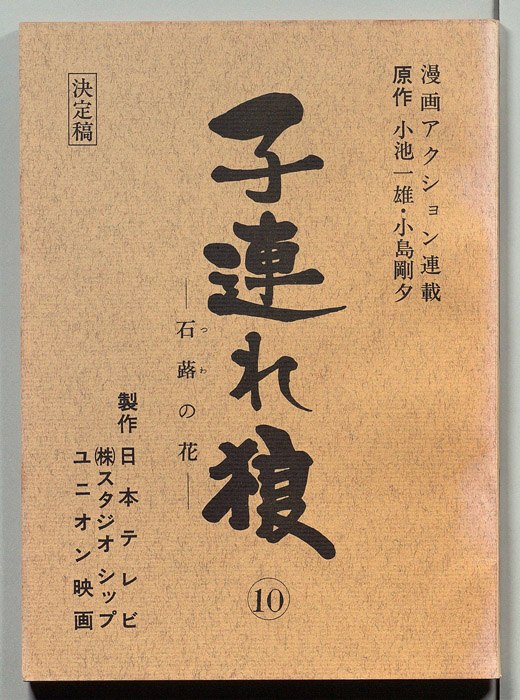 漫画アクション連載
原作 小池一雄・小島剛夕
子連れ狼
つわ
―石蕗の花―
⑩
決定稿
製作 日本テレビ
㈱スタジオシップ
ユニオン映画